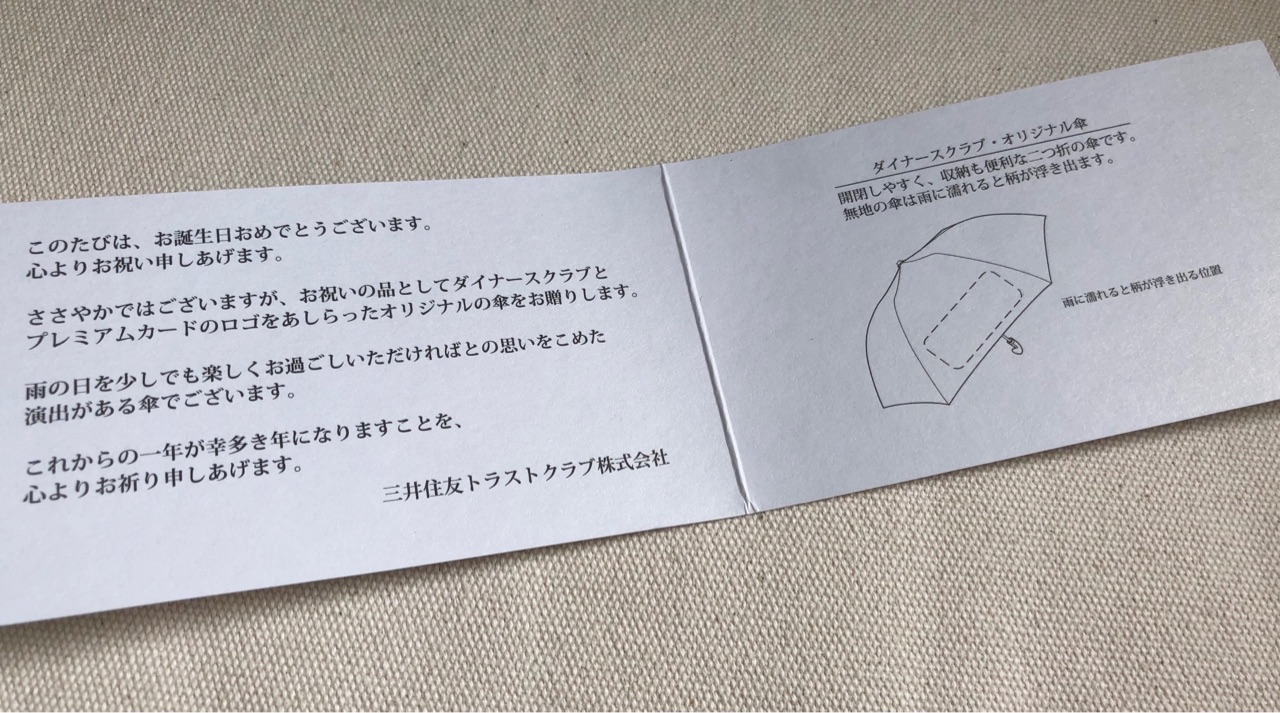 このたびは、お誕生日おめでとうございます。
心よりお祝い申しあげます。
ささやかではございますが、お祝いの品としてダイナースクラブと
プレミアムカードのロゴをあしらったオリジナルの傘をお贈りします。
雨の日を少しでも楽しくお過ごしいただければとの思いをこめた
演出がある傘でございます。
これからの一年が幸多き年になりますことを、
心よりお祈り申しあげます。
三井住友トラストクラブ株式会社
ダイナースクラブ・オリジナル傘
開閉しやすく、収納も便利な二つ折の傘です。
無地の傘は雨に濡れると柄が浮き出ます。
雨に濡れると柄が浮き出る位置